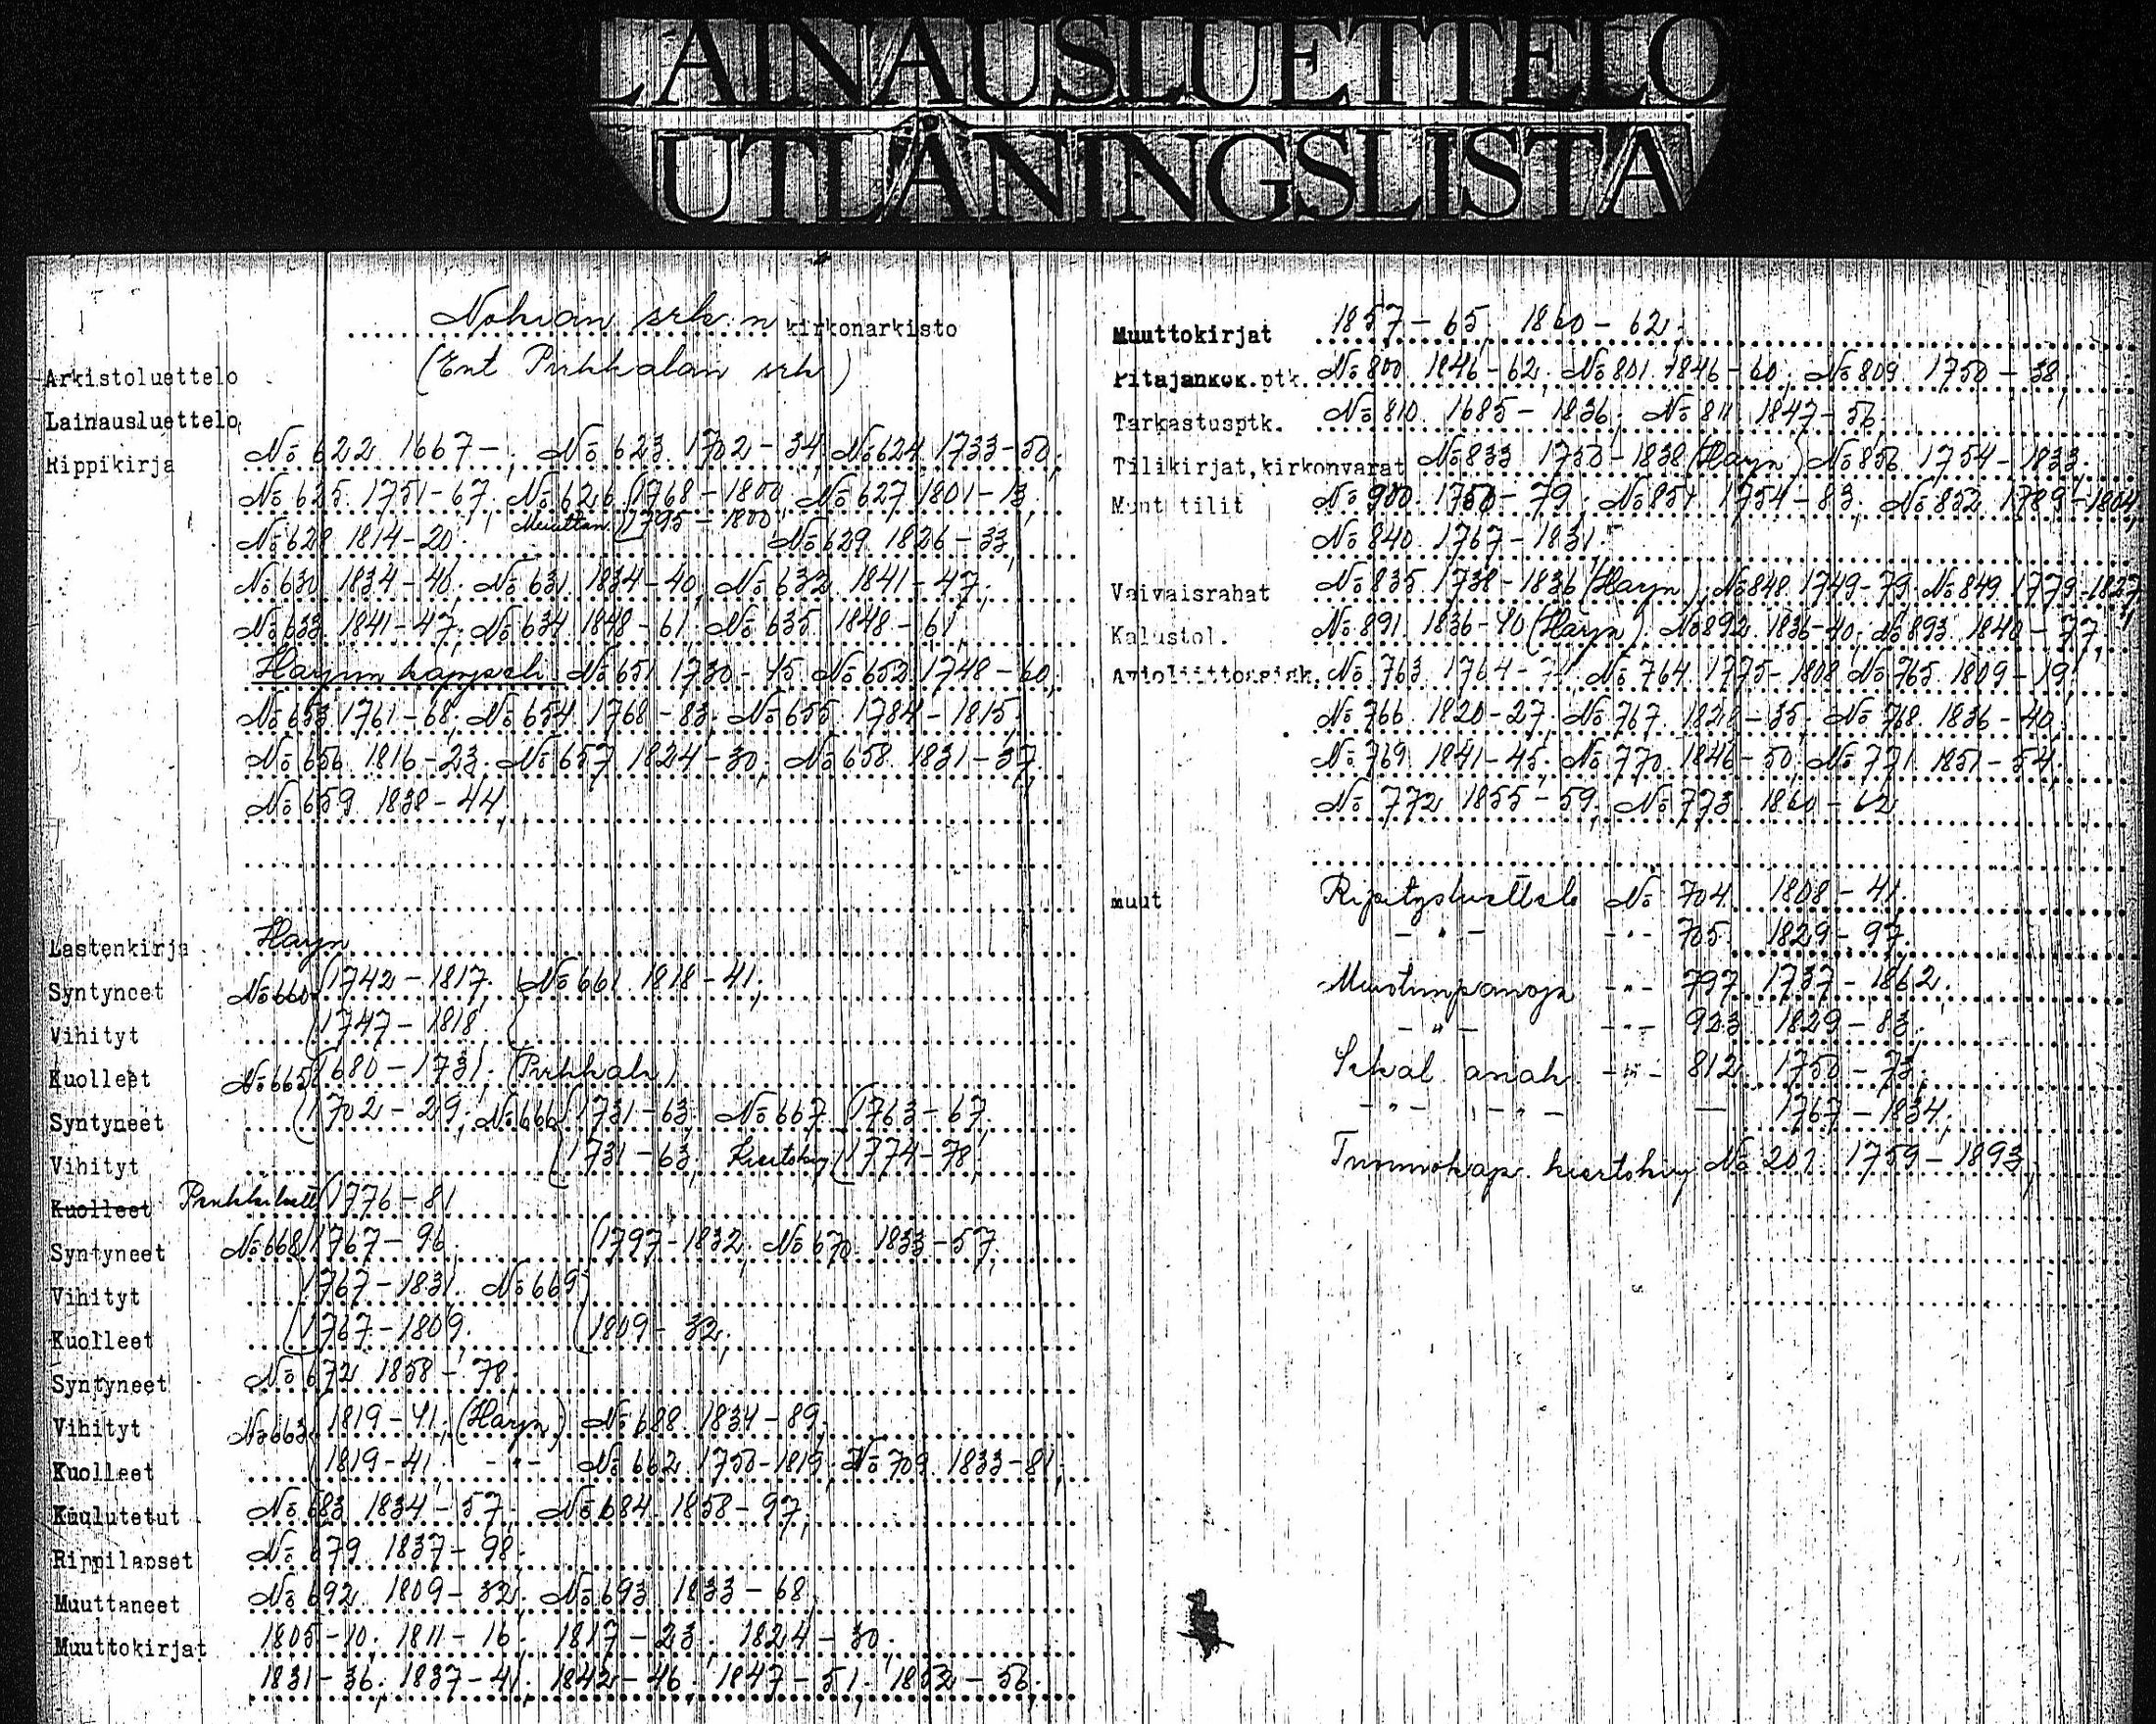 LAINAUSLUETTELO
UTLÅNINGSLISTA
Nokian srk:n kirkonarkisto
Arkistoluettelo (Ent Pirkkalan srk)
Lainausluettelo
Rippikirja No 622 1667 - ; No 623 1702 - 34; No 624 1733-50;
No 625 1751-67; No 626 (1768 - 1800; No 627 1801 - 13;
Muuttan. (1795 - 1800;
No 628 1814-20; No 629 1826 - 33;
No 630 1834-40; No 631 1834-40; No 632 1841-47;
No 633 1841-47; No 634 1848-61; No 635 1848-61;
Harjun kappeli No 651 1730-45 No 652 1748-60;
No 653 1761-68; No 654 1768-83; No 655 1784-1815;
No 656 1816-23; No 657 1824-30; No 658 1831-37;
No 659 1838-44;
Lastenkirja Harju
Syntyneet No 660 (1742-1817; No 661 1818-41;
Vihityt (1747-1818;
Kuolleet No 665 (1680-1731; (Pirkkala)
Syntyneet (1702-29; No 666 (1731-63; No 667 (1763-67;
Vihityt (1731-63; Kiertokirj (1774-78;
Kuolleet (1776-81
Syntyneet No 668 (1767-96 (1797-1832; No 670 1833-57;
Vihityt 1767-1831; No 669
Kuolleet (1767-1809; (1809-32;
Syntyneet No 672 1858-78;
Vihityt No 663 (1819-41; (Harju) No 688 1834-89;
Kuolleet (1819-41; - " - No 662 1750-1819; No 709 1833-81;
Kuulutetut No 683 1834-57; No 684 1858-97;
Rippilapset No 679 1837-98;
Muuttaneet No 692 1809-32; No 693 1833-68
Muuttokirjat 1805-10; 1811-16; 1817-23; 1824-30;
1831-36; 1837-41; 1842-46; 1847-51; 1852-56;
Muuttokirjat 1857-65 1860-62;
Pitäjänkok.ptk. No 800 1846-62; No 801 1846-60; No 809 1750-38;
Tarkastusptk. No 810 1685-1836; No 811 1847-56;
Tilikirjat,kirkonvarat No 833 1750-1838 (Harju) No 856 1754-1833;
Muut tilit No 900 1750-79; No 851 1754-83; No 852 1789-1804;
No 840 1767-1831;
Vaivaisrahat No 835 1738-1836 (Harju); No 848 1749-79; No 849 1779-1827;
Kalustol. No 891 1836-40 (Harju); No 892 1836-40; No 893 1840-77;
Avioliittoasiak. No 763 1764-74; No 764 1775-1808 No 765 1809-19;
No 766 1820-27; No 767 1828-35; No 768 1836-40;
No 769 1841-45; No 770 1846-50; No 771 1851-54;
No 772 1855-59; No 773 1860-62
muut Ripitysluettelo No 704 1808-41;
- " - - " - 705 1829-97;
Muistiinpanoja - " - 797 1737-1862;
- " - - " - 923 1829-83;
Sekal. asiak. - " - 812 1750-73;
- " - - " - — 1767-1834;
Tuomiokap. kiertokirj No 201 1759-1893;